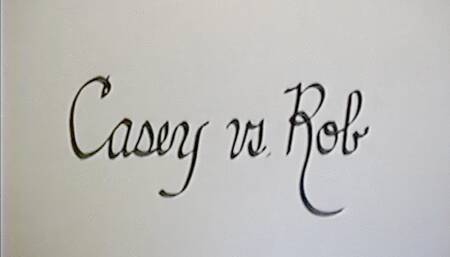 Casey vs. Rob